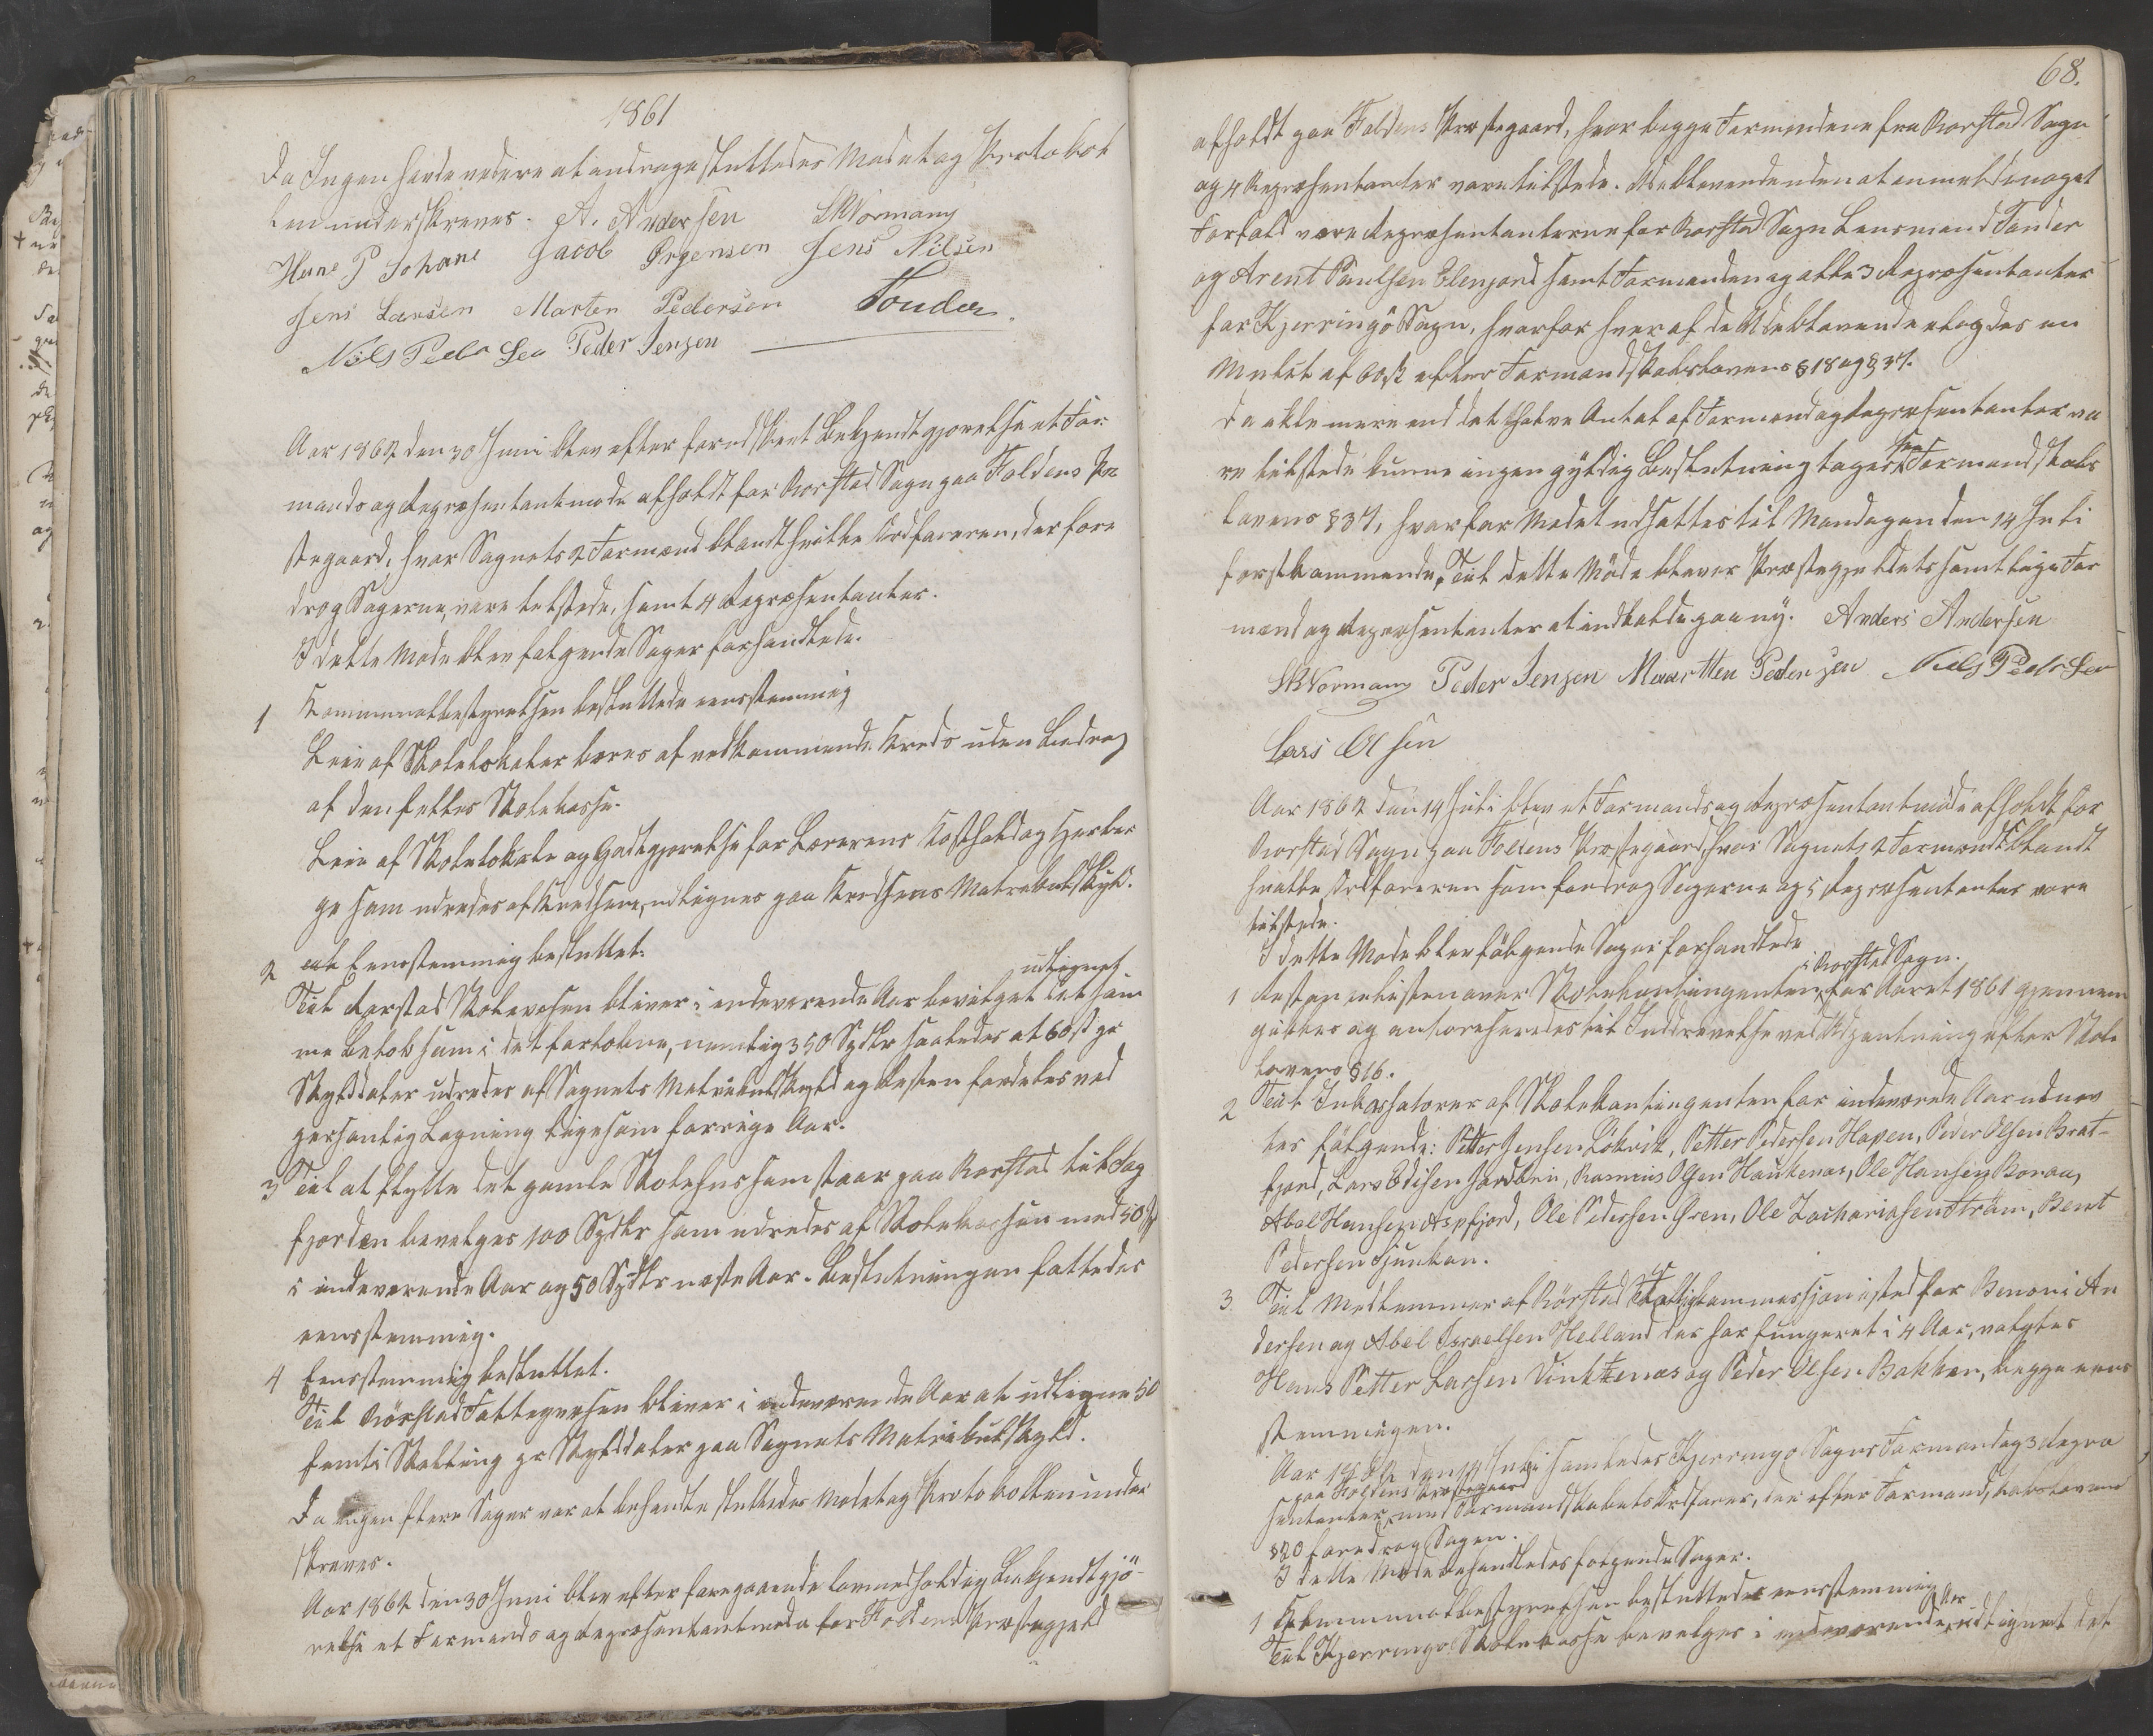 1861
Da Ingen havde videre at andrage sluttedes Mødet og Protokol
len underskreves. A. Andersen SkNormann
Hans P Johans Jacob Ørgensen Jens Nilsen
Jens Larsen Morten Pedersen Tonder
Niels Peder Sen Peder Jensen
Aar 1862 den 30 Juni blev efter forudskeet Bekjendtgjørelse et For
mands og Repræsentantmøde afholdt for Rorstad Sogn paa Foldens Præ
stegaard, hvor Sognets 2 Formænd blandt hvilke Ordføreren, der fore
drog Sagerne, vare tilstede, samt 4 Repræsentanter.
I dette Møde blev følgende Sager forhandlede.
1 Kommunalbestyrelsen besluttede eensstemmig
Leie af Skolelokaler bæres af vedkommende Kreds uden Bidrag
af den felles Skolekasse.
Leie af Skolelokale og Godtgjørelse for Lærerens Kosthold og Herber
ge som udredes af Kredsene, udlignes paa Kredsens Matrikulskyld.
2 Eensstemmig besluttet.
udlignet
Til Rorstad Skolevæsen bliver i indeværende Aar bevilget det sam
me Beløb som i det forløbne, nemlig 350 Spdlr saaledes at 60 ß pr
Skylddaler udredes af Sognets Matrikulskyld og Resten fordeles ved
personlig Ligning ligesom forrige Aar.
3 Til at flytte det gamle Skolehus som staar paa Rorstad til
fjorden bevilges 100 Spdlr som udredes af Skolekassen med 50
i indeværende Aar og 50 Spdlr næste Aar. Beslutningen fattedes
eensstemmig.
4 Eensstemmig besluttet.
Til Rörstad Fattigvæsen bliver i indeværende Aar at udligne 50
femti Skilling pr Skylddaler paa Sognets Matrikulskyld.
Da ingen flere Sager var at behandle sluttedes Mødet og Protokollen under
skreves.
Aar 1862 den 30 Juni blev efter foregaaende lovmedholdig Bekjendtgjö-
relse et Formands og Repræsentantmøde for Foldens Præstegjeld
68.
afholdt paa Foldens Præstegaard, hvor begge Formændene fra Rorstad Sogn
og 4 Repræsentanter vare tilstede. Udeblevende uden at anmelde noget
Forfald vare Repræsentanterne for Rorstad Sogn Lensmand Tonder
og Arent Paulsen samt Formanden og alle 3 Repræsentanter
for Kjerringö Sogn, hvorfor hver af de Udeblevende ilagdes en
Mulct af 60 ß efter Formandskabslovens § 18 og § 37.
Da ikke mere end det halve Antal af Formænd og Repræsentanter va
re tilstede kunne ingen gyldig Beslutning tages Formandskabs
lovens § 37, hvorfor Mødet udsattes til Mandagen den 14 Juli
førstkommende. Til dette Möde bliver Præstegjeldets samtlige For
mænd og Repræsentanter at indkalde paa ny. Anders Andersen
SkNormann Peder Jensen Maartten Pedersen Niels Peder Sen
Lars Olsen
Aar 1862 den 14 Juli blev et Formands og Repræsentantmöde afholdt for
Rorstad Sogn paa Foldens Præstegaard hvor Sognets 2 Formænd blandt
hvilke Ordføreren som foredrog Sagerne og 5 Repræsentanter vare
tilstede.
I dette Møde blev fölgende Sager forhandlede
i Rorstad Sogn.
1 Restancelisten over Skolekontingenten for Aaret 1861 gjennem
gikkes og autoriseredes til Inddrivelse ved Udpantning efter Skole
lovens § 16.
2 Til Inkassatorer af Skolekontingenten for indeværende Aar udnæv
tes fölgende: Petter Jensen Lökvik, Petter Pedersen Hopen, Peder Olsen Bret-
fjord, Lars Edisen, Olsen Haukenæs, Ole Hansen Bonaa,
Abel Hansen Aspfjord, Ole Pedersen, Ole Zachariasen Ström, Bent
Pedersen Fjunkan.
3. Til Medlemmer af Rörstad Fattigkommission istedfor Benoni An
dersen og Abel Israelsen Helland der har fungeret i 4 Aar, valgtes
Hans Petter Larsen Vinkenæs og Peder Olsen Bakken, begge eens
stemmigen.
Aar 1862 den 14 Juli samledes Kjerringö Sogns Formænd og 3 Repræ
paa Foldens Præstegaard
sentanter med Formandskabets Ordfører, der efter Formandskabsloven
§ 20 foredrog Sagen.
I dette Møde behandledes følgende Sager.
1 Kommunalbestyrelsen besluttede eensstemmig
Aar
Til Kjerringö Skolekasse bevilges i indeværende udlignet det